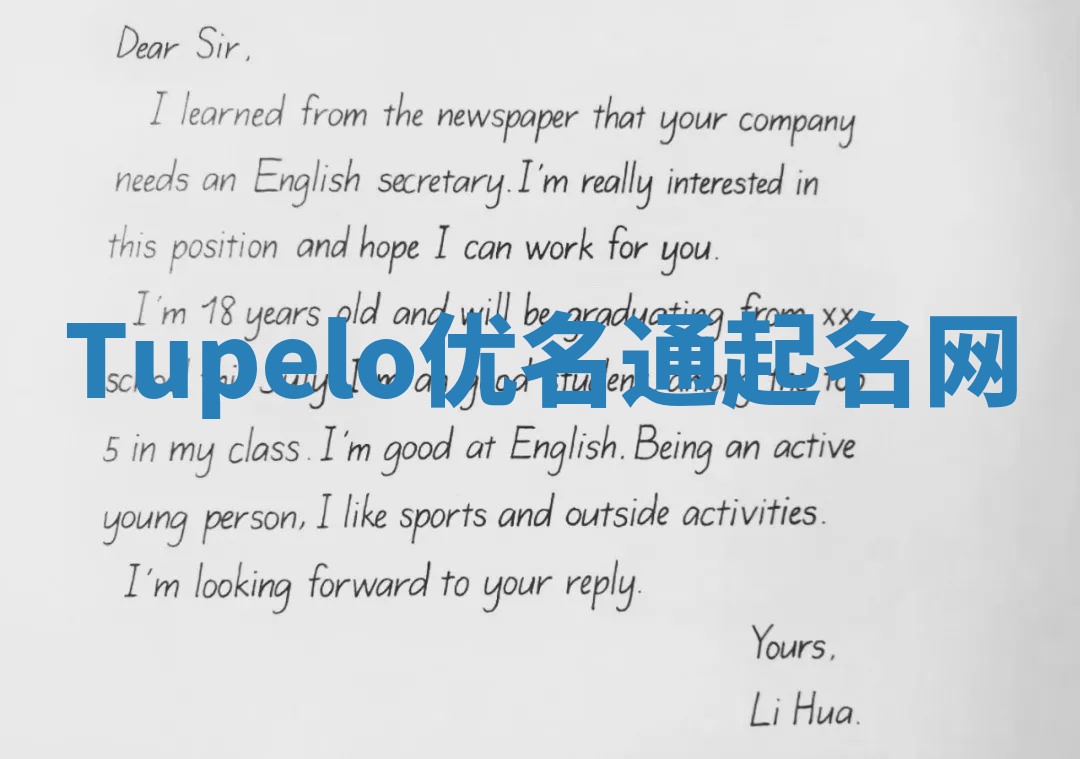 Dear Sir,
I learned from the newspaper that your company
needs an English secretary. I'm really interested in
this position and hope I can work for you.
I'm 18 years old and will be graduating from xx
Tupelo优名通起名网
school this July. I'm a good student among the top
5 in my class. I'm good at English. Being an active
young person, I like sports and outside activities.
I'm looking forward to your reply.
Yours,
Li Hua.